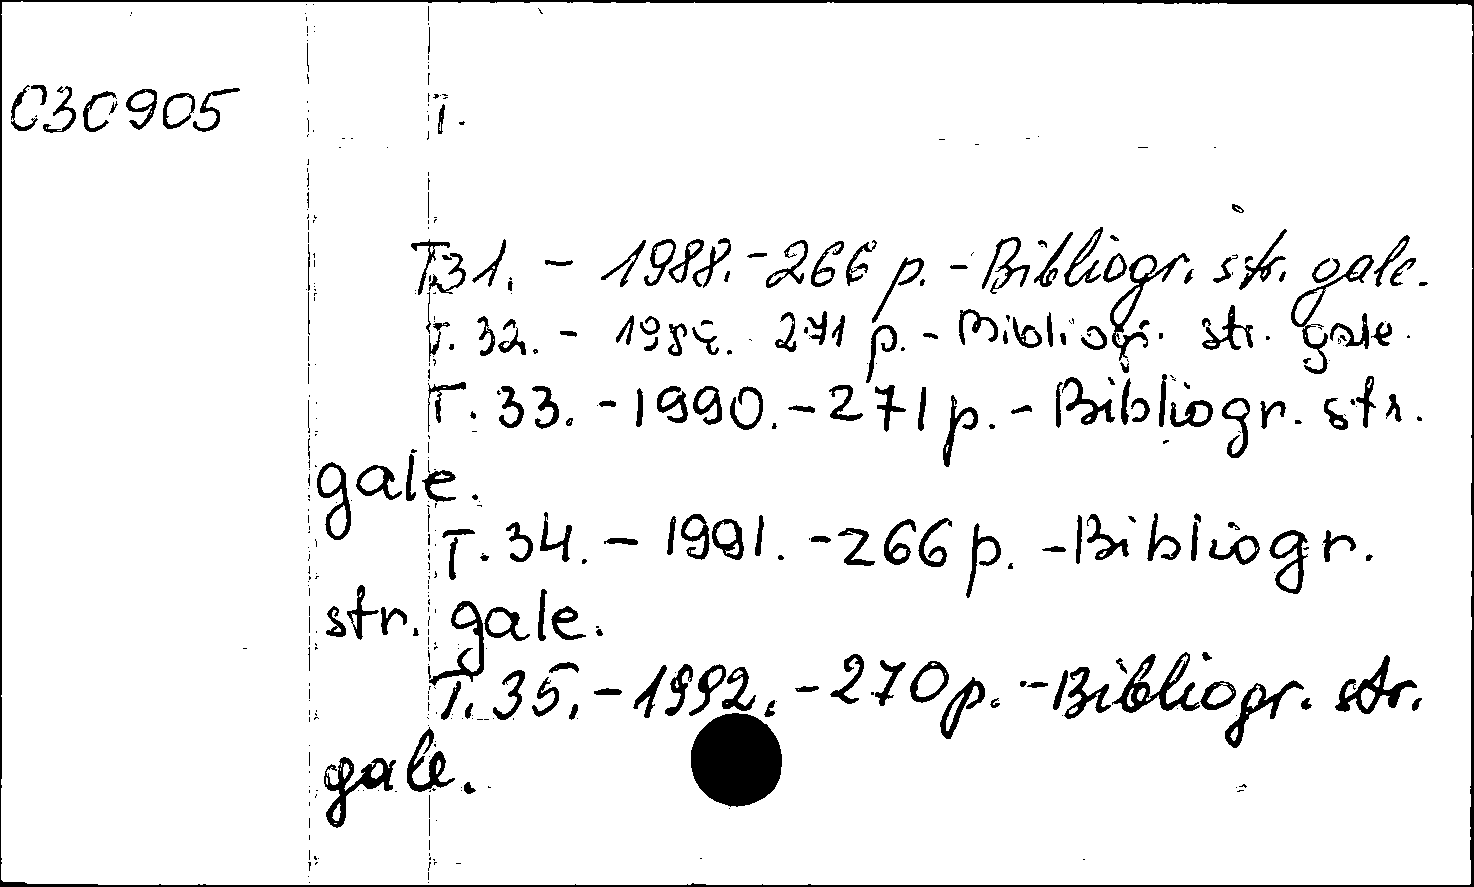 C30905 T.
T.31. - 1988. - 266 p. - Bibliogr. str. gale.
T. 32. - 271 p. - Bibliogr. str. gale.
T. 33. - 1990. - 271 p. - Bibliogr. str.
gale.
T. 34. - 1991. - 266 p. - Bibliogr.
str. gale.
T. 35. - 1992. - 270 p. - Bibliogr. str.
gale.